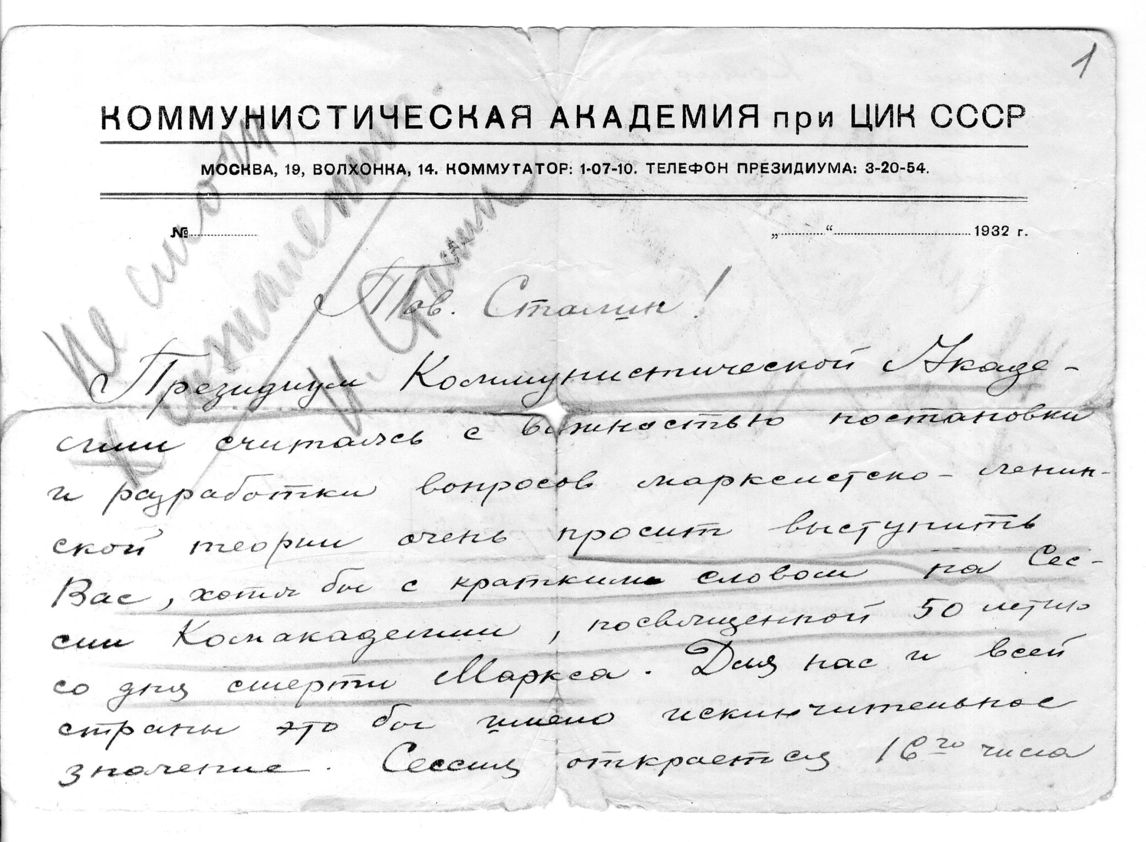 1
КОММУНИСТИЧЕСКАЯ АКАДЕМИЯ при ЦИК СССР
МОСКВА, 19, ВОЛХОНКА, 14. КОММУТАТОР: 1-07-10. ТЕЛЕФОН ПРЕЗИДИУМА: 3-20-54.
№ „ “ 1932 г.
Не смогу,
к сожалению.
И. Сталин
Тов. Сталин!
Президиум Коммунистической Акаде-
мии считаясь с важностью постановки
и разработки вопросов марксистско-ленин-
ской теории очень просит выступить
Вас, хотя бы с кратким словом на Сес-
сии Комакадемии, посвященной 50 летию
со дня смерти Маркса. Для нас и всей
страны это бы имело исключительное
значение. Сессия откроется 16го числа